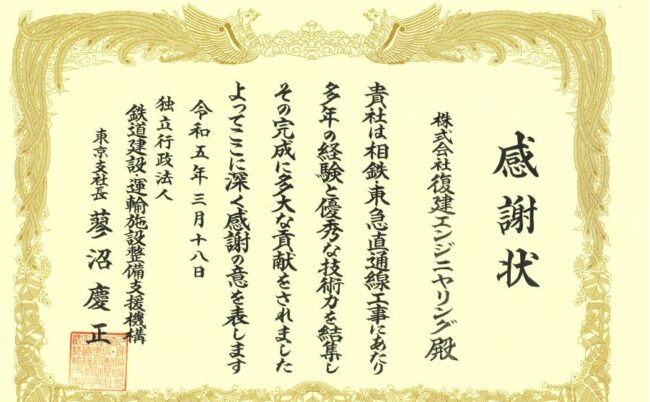 感謝状
株式会社復建エンジニヤリング殿
貴社は相鉄・東急直通線工事にあたり
多年の経験と優秀な技術力を結集し
その完成に多大な貢献をされました
よってここに深く感謝の意を表します
令和五年三月十八日
独立行政法人
鉄道建設・運輸施設整備支援機構
東京支社長 蓼沼慶正